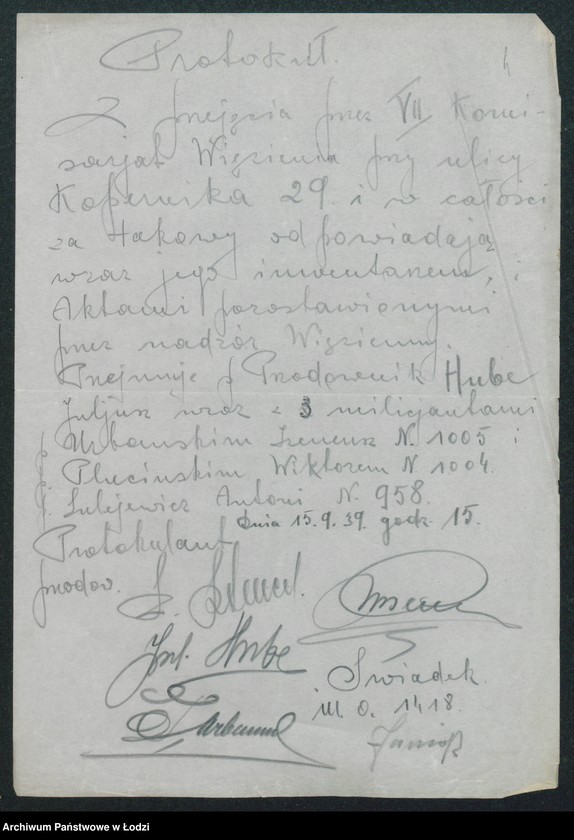 Protokuł.
Z przejęcia przez VII Komi-
sarjat Więzienia przy ulicy
Kopernika 29. i w całości
za takowy odpowiadają
wraz jego inwentarzem, i
Aktami pozostawionymi
przez nadzór Więzienny.
Przejmuje p Przodownik Hube
Juljusz wraz z 3 milicjantami
p Urbanskim Ireneusz N. 1005 i
p. Plucinskim Wiktorem N 1004.
p. Antoni N. 958.
dnia 15.9.39. godz. 15.
Protokulant
przodow.
Jul. Hube
Świadek.
m. O. 1418.
Archiwum Państwowe w Łodzi